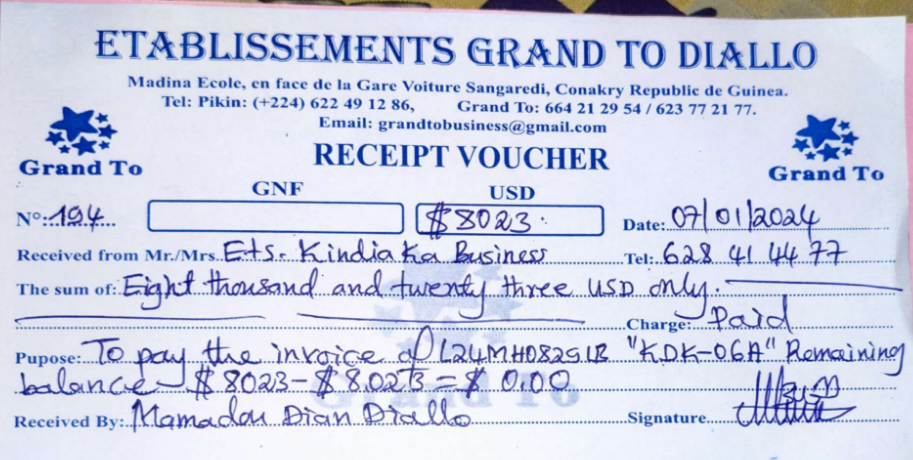 ETABLISSEMENTS GRAND TO DIALLO
Madina Ecole, en face de la Gare Voiture Sangaredi, Conakry Republic de Guinea.
Tel: Pikin: (+224) 622 49 12 86, Grand To: 664 21 29 54 / 623 77 21 77.
Email: grandtobusiness@gmail.com
Grand To RECEIPT VOUCHER Grand To
GNF USD
N°: 194 $ 8023 Date: 07/01/2024
Received from Mr./Mrs. Ets. Kindia Ka Business Tel: 628 41 44 77
The sum of: Eight thousand and twenty three USD only.
Charge: Paid
Pupose: To pay the invoice of "KDK-06A" Remaining
balance $ 8023 - $ 8.023 = $ 0.00
Grand To
Received By: Mamadou Dian Diallo Signature